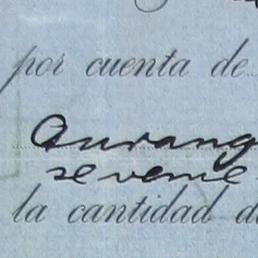 por cuenta de
Aurang
se verne
la cantidad d